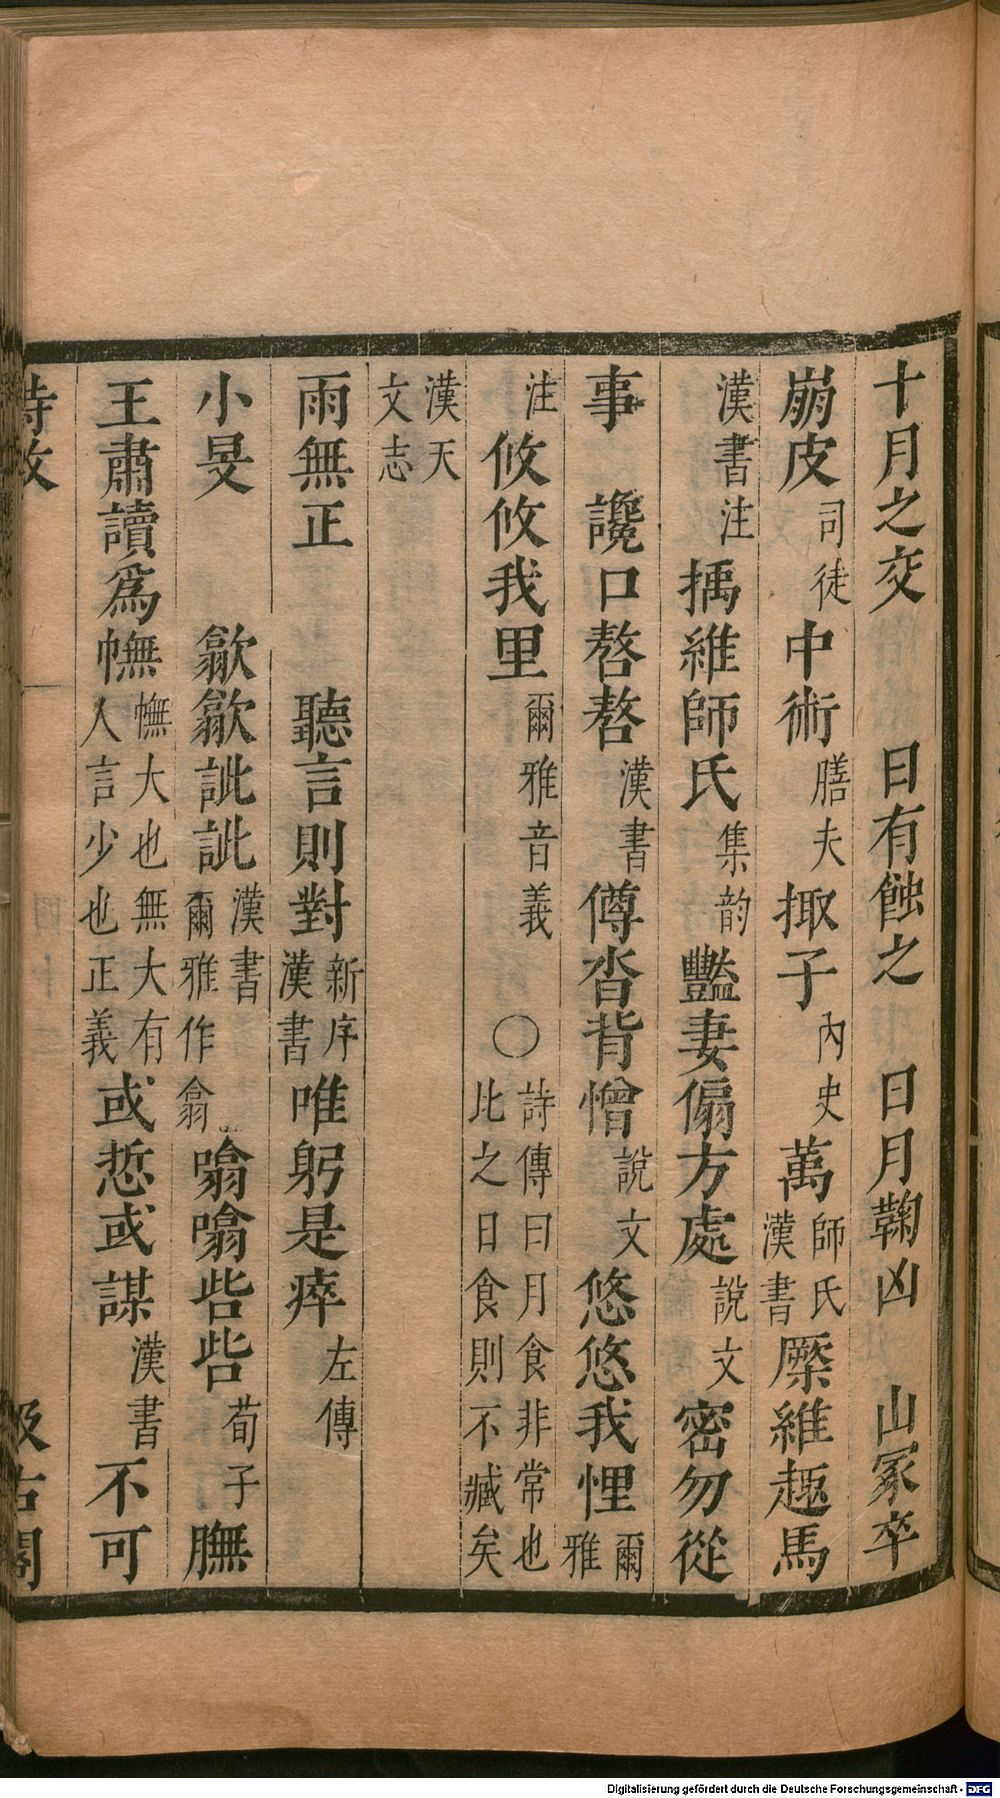 十月之交　日有蝕之　日月鞠凶　山冢卒
崩皮司徒中術膳夫掫子內史萬師氏漢書厩維趣馬
漢書注 㩓維師氏集韵豔妻傓方處說文密勿從
事　讒口嗸嗸漢書僔沓背憎說文悠悠我悝爾雅
注攸攸我里爾雅音義〇詩傳曰月食非常也比之日食則不臧矣
漢天文志
雨無正　聽言則對新序漢書唯躬是瘁左傳
小旻　歙歙訿訿漢書爾雅作翕噏噏呰呰荀子膴
王肅讀爲幠幠大也無大有人言少也正義或悊或謀漢書不可
詩攷　四十二　汲古閣
Digitalisierung gefördert durch die Deutsche Forschungsgemeinschaft - DFG